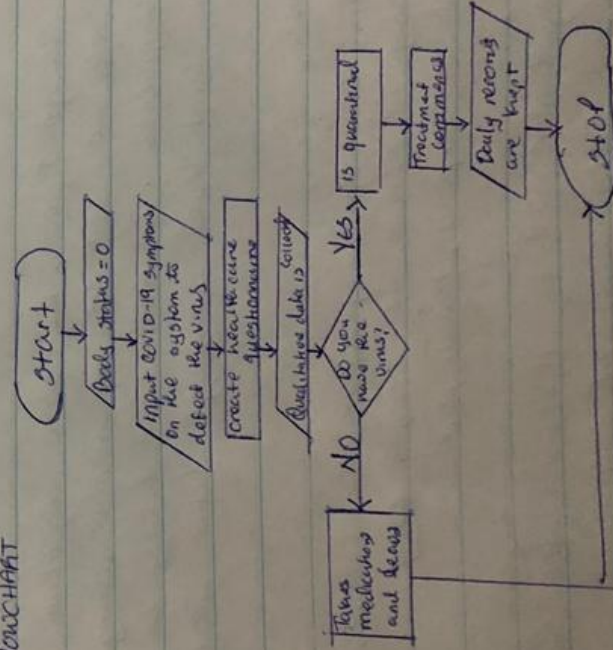 FLOWCHART
Start
Body status = 0
Input COVID-19 symptoms
on the system to
detect the virus
Create health care
questionnaire
Qualitative data is collected
Do you
have the
virus?
NO
YES
Takes
medication
and
Is quarantined
Treatment
commences
Daily records
are kept
STOP